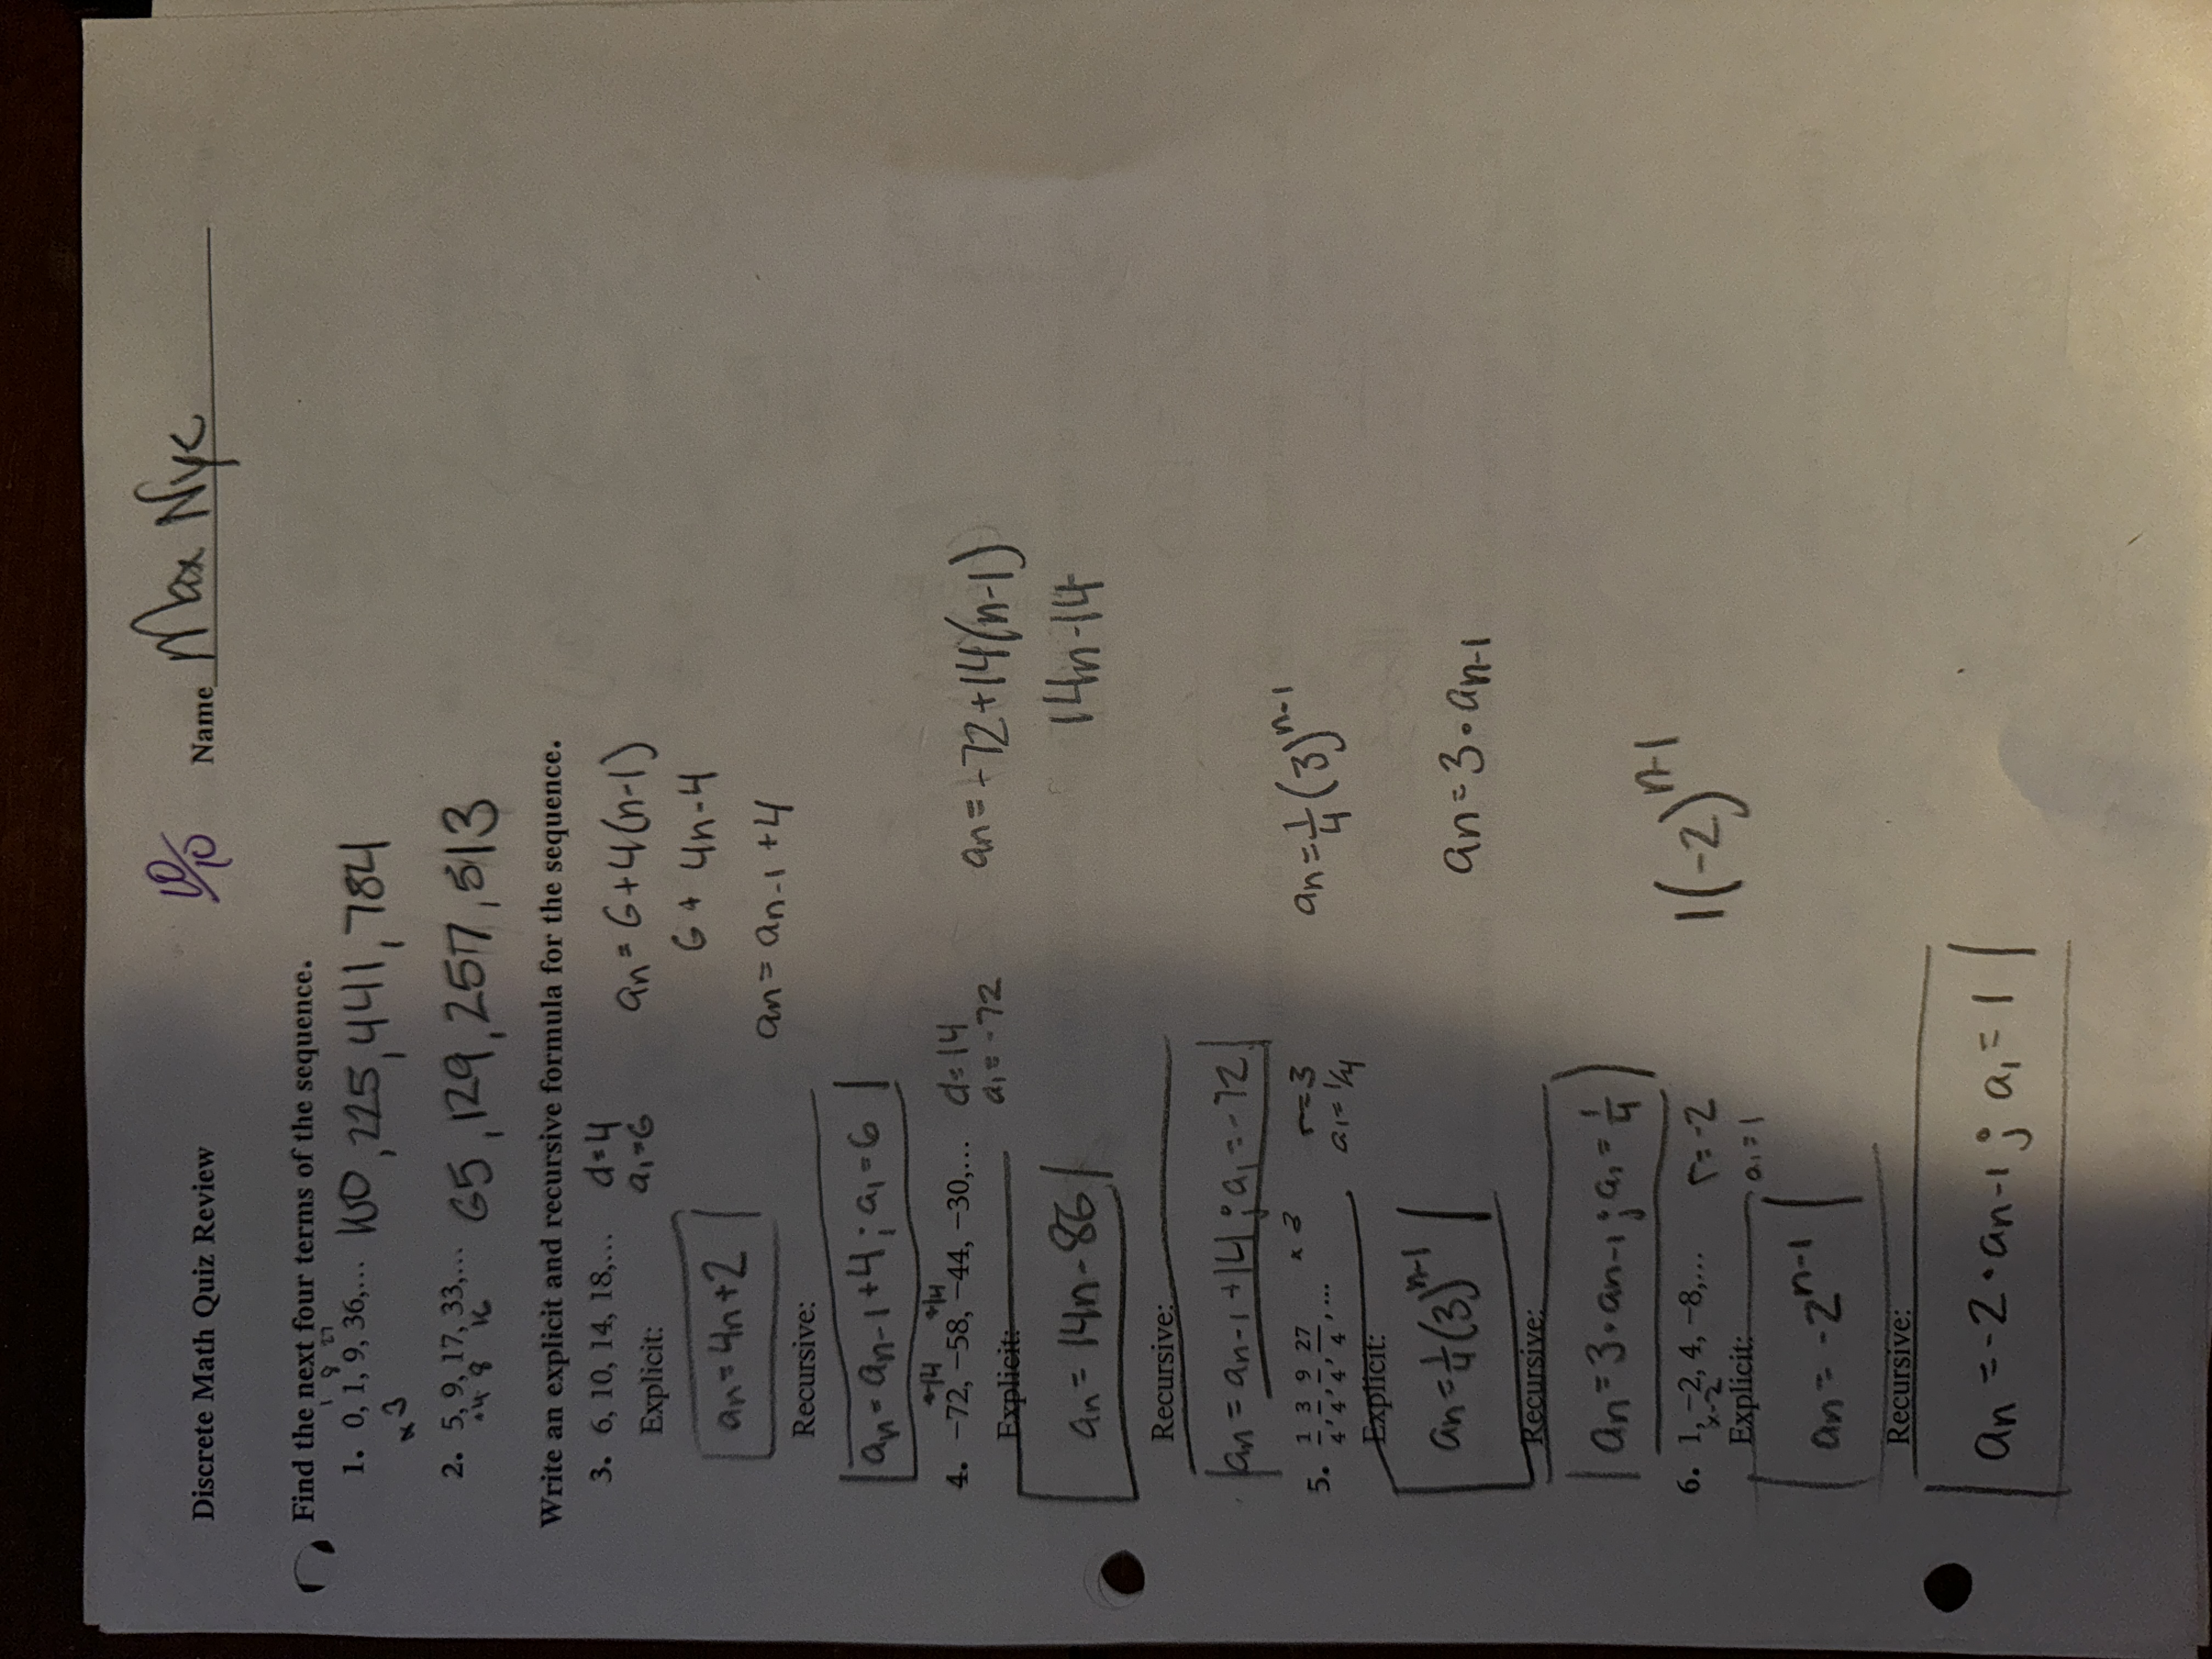 Discrete Math Quiz Review 10/10 Name Max Nye
Find the next four terms of the sequence.
1 8 27
1. 0, 1, 9, 36,... 100, 225, 441, 784
x 3
2. 5, 9, 17, 33,... 65, 129, 257, 513
+4 8 16
Write an explicit and recursive formula for the sequence.
3. 6, 10, 14, 18,... d=4 an = 6+4(n-1)
a1=6
Explicit:
6 + 4n-4
an = 4n+2
an = an-1 +4
Recursive:
an = an-1+4; a1=6
+14 +14
4. −72, −58, −44, −30,... d=14 an = -72+14(n-1)
a1 = -72
Explicit:
an = 14n-86 14n-14
Recursive:
an = an-1 +14; a1 = -72
5. 1/4, 3/4, 9/4, 27/4, ... x 3 r=3 an = 1/4 (3)^n-1
a1= 1/4
Explicit:
an = 1/4 (3)^n-1 an = 3·an-1
Recursive:
an = 3·an-1; a1 = 1/4
6. 1, −2, 4, −8,... r=-2 1(-2)^n-1
x-2
Explicit: a1=1
an = -2^n-1
Recursive:
an = -2·an-1; a1 = 1